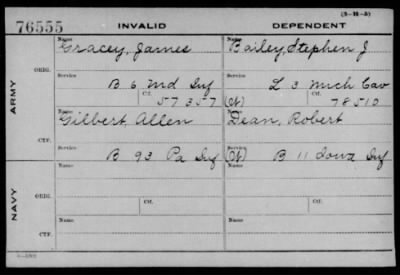 (3-16-5)
76555 INVALID DEPENDENT
Name Name
Gracey, James Bailey, Stephen J
ORIG. Service Service
B 6 Md Inf L 3 Mich Cav
Ctf. Ctf.
57357 (Ct) 78510
ARMY
Name Name
Gilbert Allen Dean, Robert
CTF. Service Service
B 93 Pa Inf (Ct) B 11 Iowa Inf
Name Name
ORIG. Ctf. Ctf.
NAVY
Name Name
CTF.